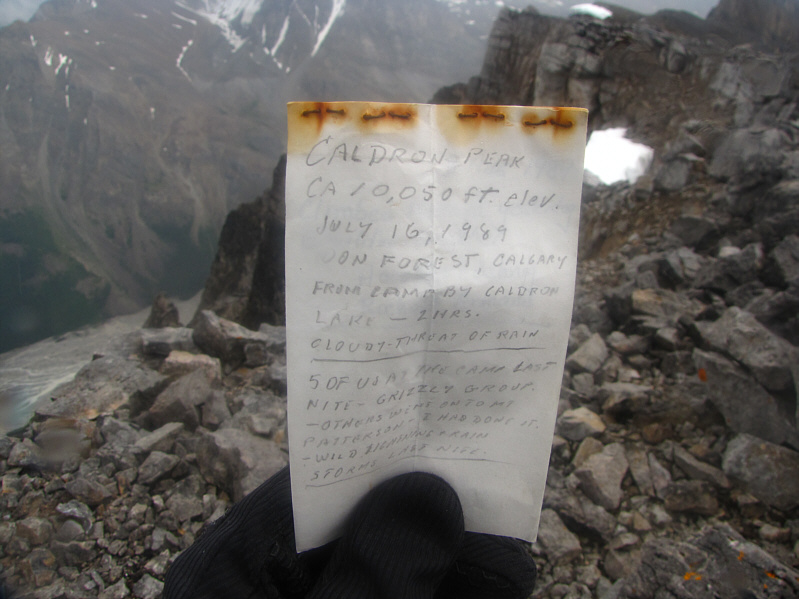 CALDRON PEAK
CA 10,050 ft. elev.
JULY 16, 1989
JON FOREST, CALGARY
FROM CAMP BY CALDRON
LAKE - 2 HRS.
CLOUDY-THREAT OF RAIN
5 OF US AT THE CAMP LAST
NITE - GRIZZLY GROUP.
- OTHERS WENT ONTO MT
PATTERSON - I HAD DONE IT.
- WILD LIGHTNING & RAIN
STORMS LAST NITE.